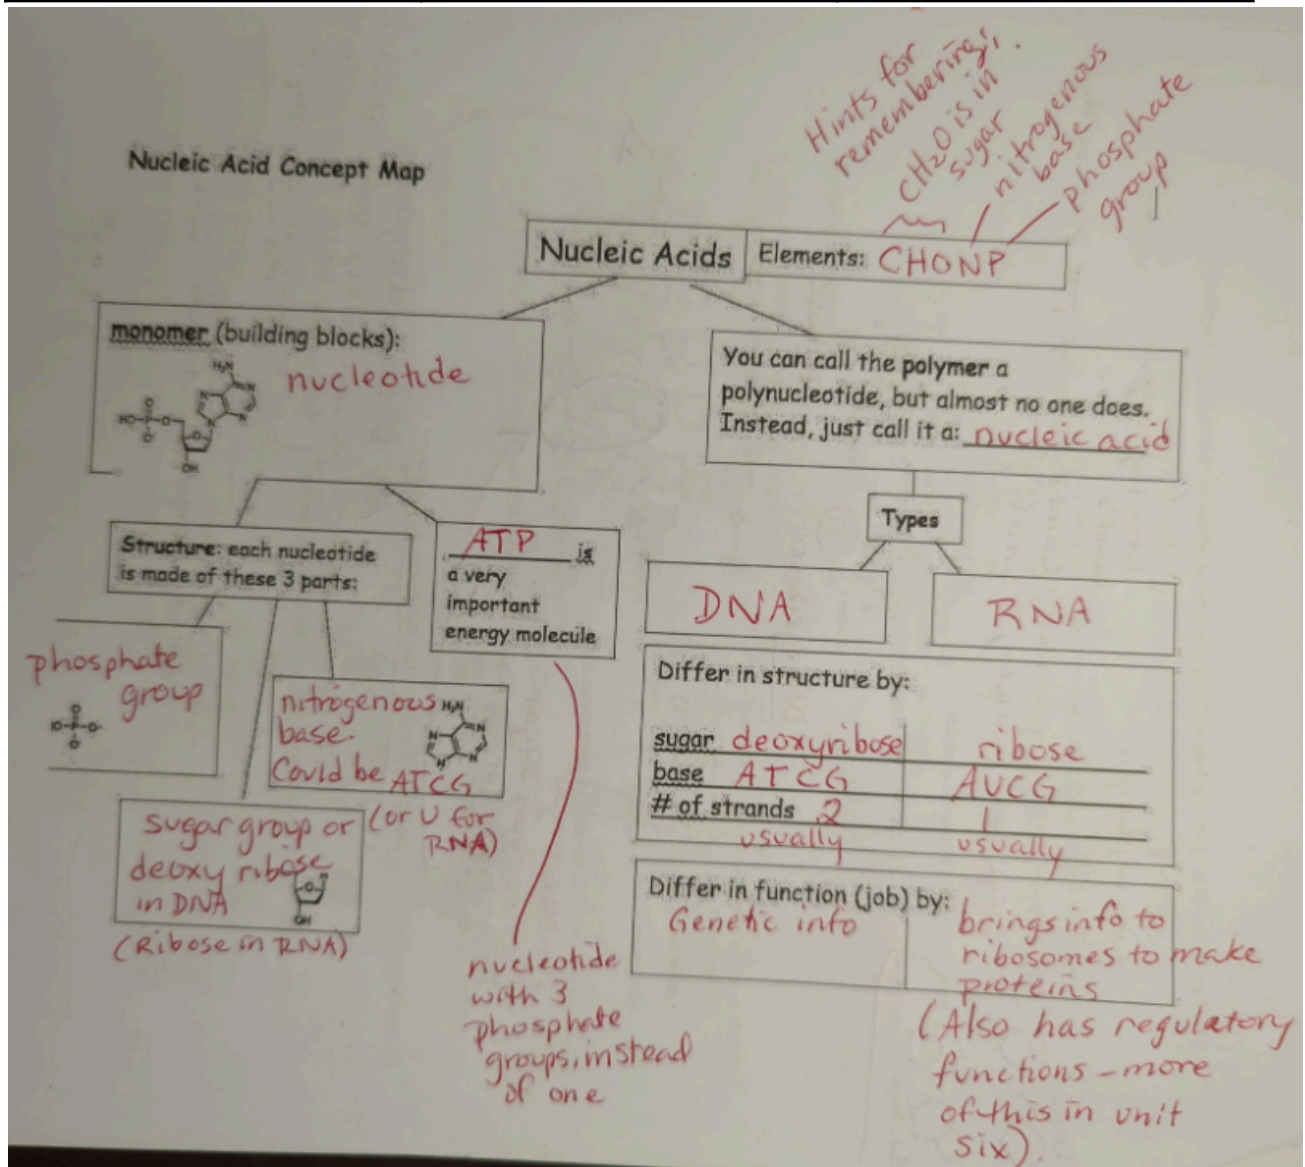 Hints for
remembering:
CH2O is in
sugar
nitrogenous
base
phosphate
group
Nucleic Acid Concept Map
Nucleic Acids
Elements: CHONP
monomer (building blocks):
nucleotide
H2N
N
N
N
N
HO-P-O
O
O-
O
OH
You can call the polymer a
polynucleotide, but almost no one does.
Instead, just call it a: nucleic acid
Types
Structure: each nucleotide
is made of these 3 parts:
ATP is
a very
important
energy molecule
DNA
RNA
phosphate
group
nitrogenous
base.
Could be ATCG
(or U for
RNA)
H2N
N
N
N
N
H
sugar group or
deoxy ribose
in DNA
O
OH
(Ribose in RNA)
nucleotide
with 3
phosphate
groups, instead
of one
Differ in structure by:
sugar deoxyribose ribose
base ATCG AUCG
# of strands 2 1
usually usually
Differ in function (job) by:
Genetic info
brings info to
ribosomes to make
proteins
(Also has regulatory
functions - more
of this in unit
six).